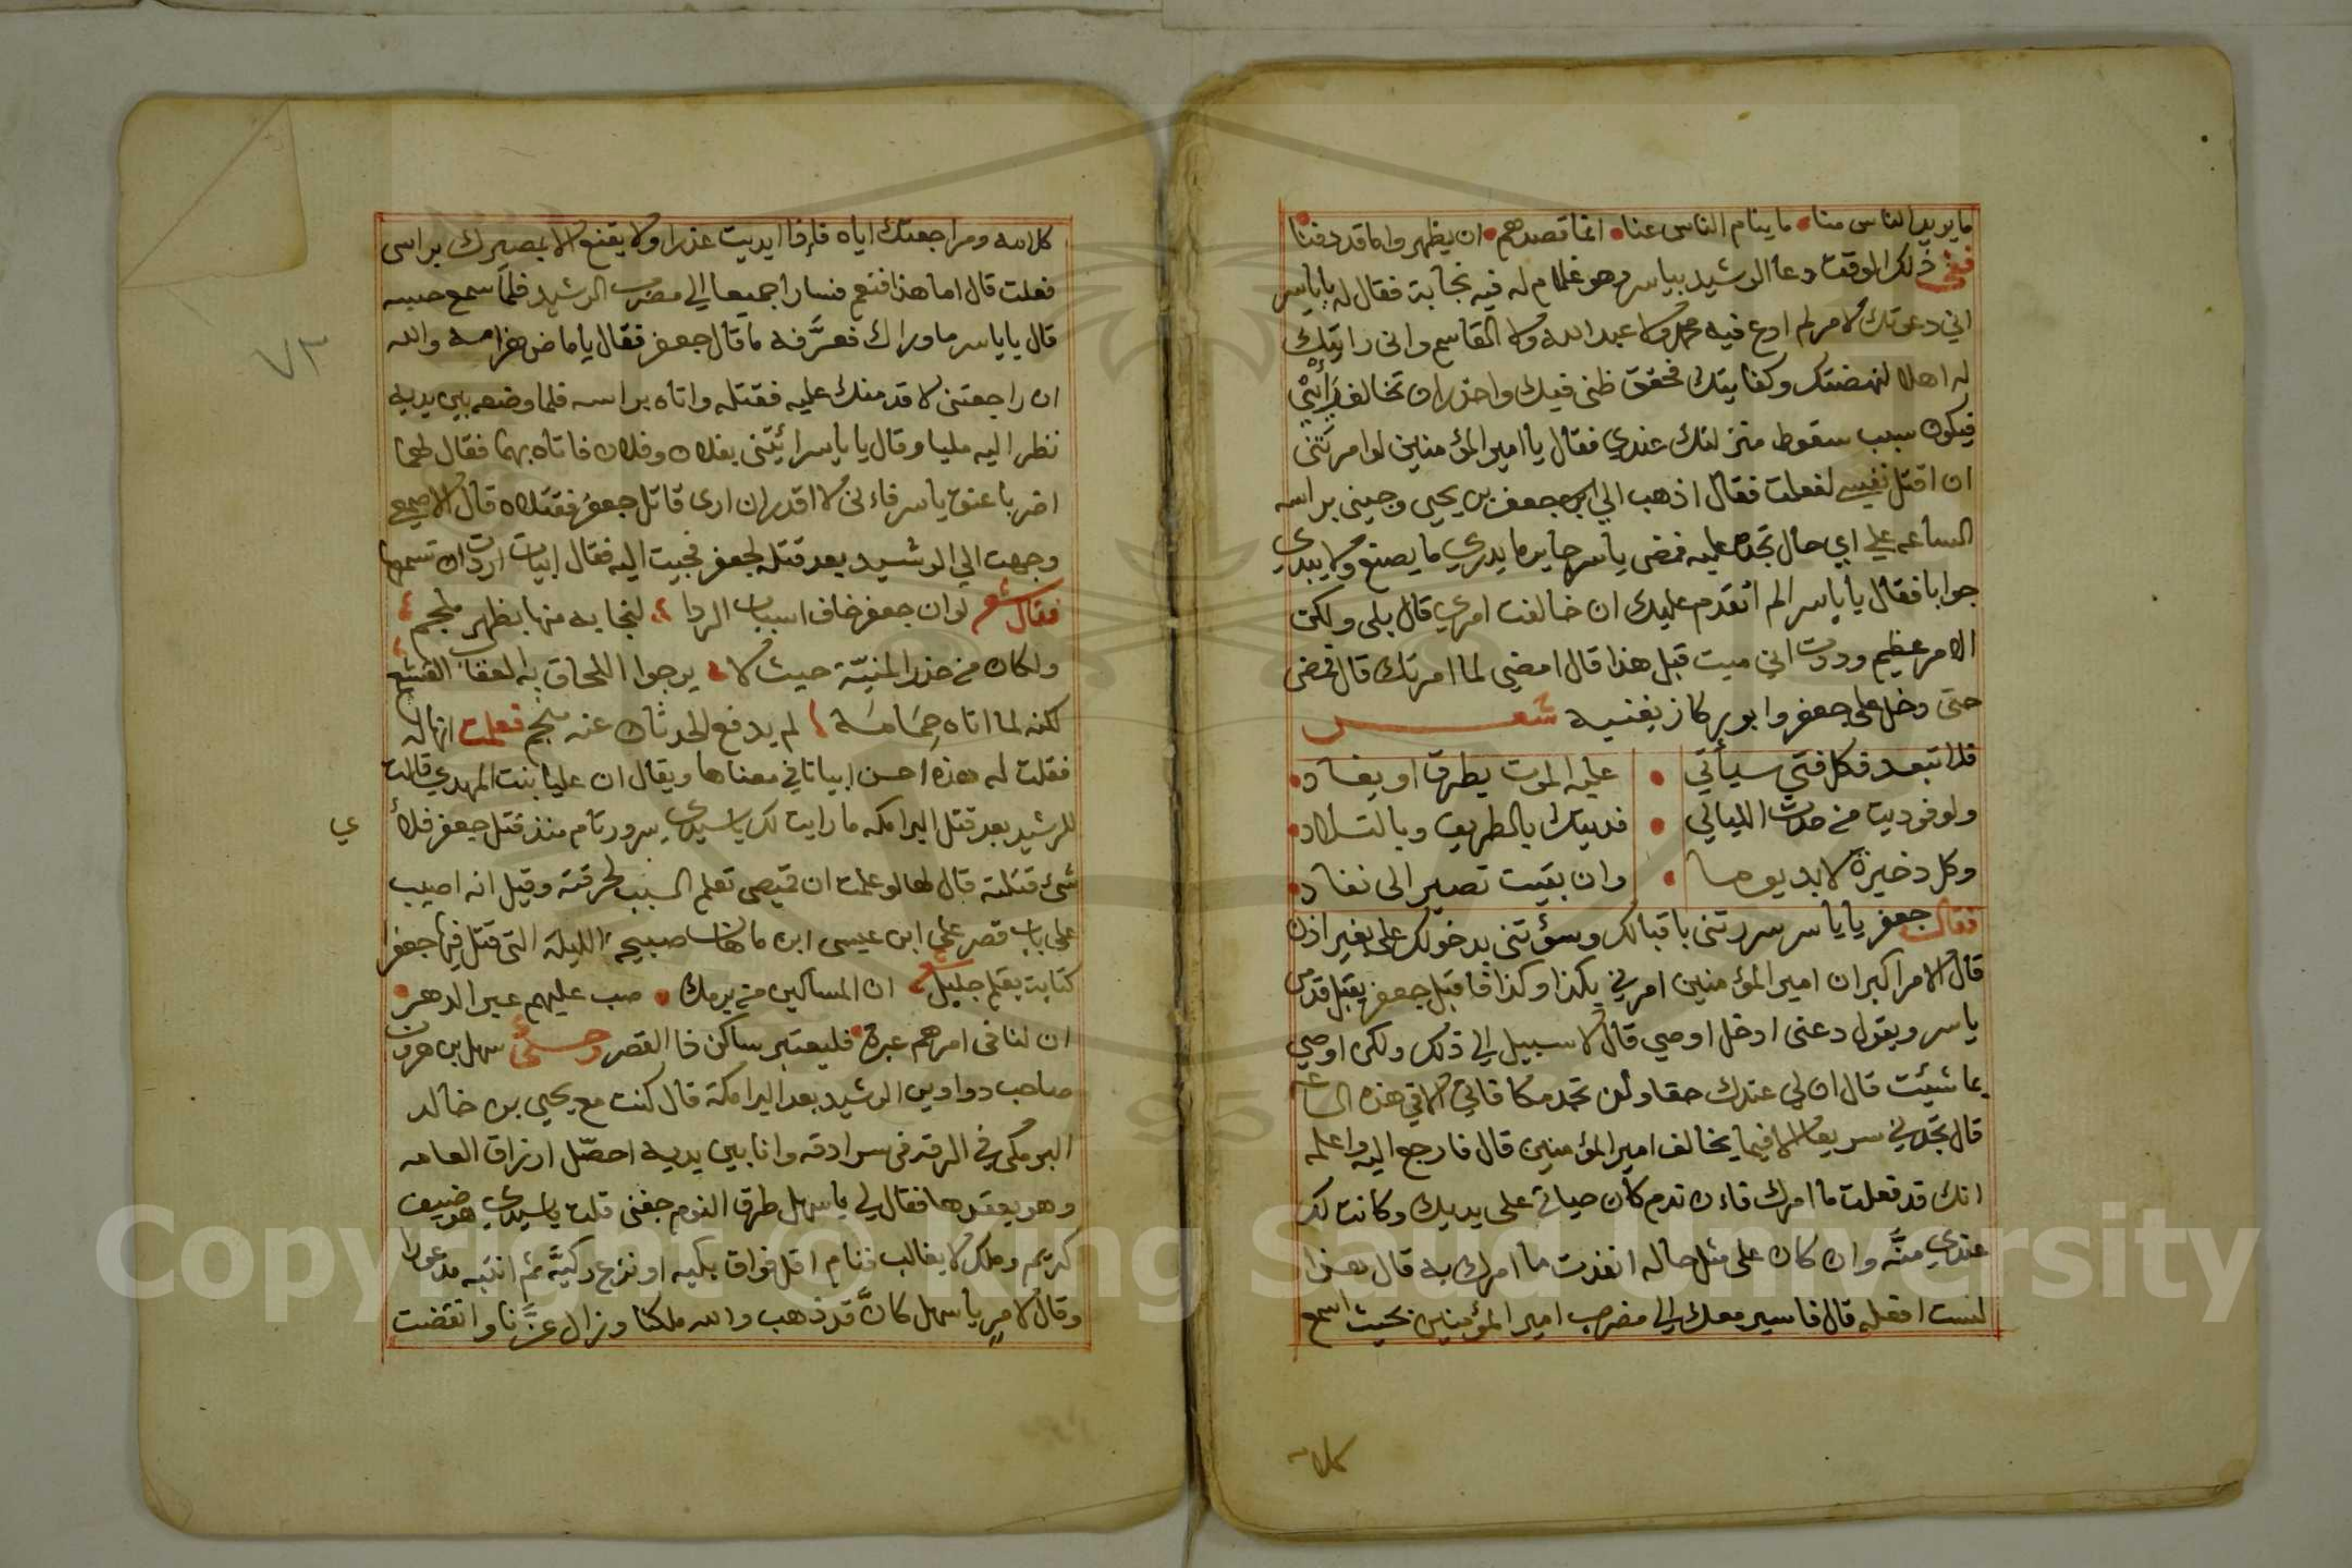 ما يريد الناس منا ما ينام الناس عنا انما قصدهم ان يظهروا ما قد دفنا
ففي ذلك الوقت دعا الرشيد بياسر وهو غلام له فيه نجابة فقال له يا ياسر
اني دعوتك لامر لم ادع فيه محمدا ولا عبد الله ولا القاسم واني رايتك
له اهلا لنهضتك وكفايتك فحقق ظني فيك واحذر ان تخالف
فيكون سبب سقوط منزلتك عندي فقال يا امير المؤمنين لو امرتني
ان اقتل نفسي لفعلت فقال اذهب الي جعفر بن يحيى وجيني براسه
الساعه علي اي حال تجده عليه فمضى ياسر حاير ما يدري ما يصنع ولا يبدي
جوابا فقال يا ياسر الم اتقدم عليك ان خالفت امري قال بلى ولكن
الامر عظيم وددت اني ميت قبل هذا قال امضي لما امرتك قال فمضى
حتى دخل على جعفر وابو بركاز يغنيه شعر
فلا تبعد فكل فتي سيأتي عليه الموت يطرق او يغاد
ولو فوديت من حدث الليالي فديتك بالطريف وبالتلاد
وكل ذخيرة لا بد يوما وان بقيت تصير الى نفاد
فقال جعفر يا ياسر سررتني باقبالك وسؤتني بدخولك على بغير اذن
قال الامر اكبر ان امير المؤمنين امرني بكذا وكذا فاقبل جعفر يقبل قدمي
ياسر ويقول دعني ادخل اوصي قال لا سبيل الي ذلك ولكن اوصي
بما شيئت قال ان لي عندك حقا ولن تجد مكافاتي الا في هذه الساعه
قال تجدني سريعا الا فيما يخالف امير المؤمنين قال فارجع اليه واعلمه
انك قد فعلت ما امرك فاءن ندم كان حياتي على يديك وكانت لك
عندي منَّه وان كان على مثل حاله انفذت ما امرك به قال هذا
لست افعله قال فاسير معك الي مضرب امير المؤمنين بحيث اسمع
كلامه
كلامه ومراجعتك اياه فإذا ابديت عذرا ولا يقنع الا بمصيرك براسى
فعلت قال اما هذا فنعم فسارا جميعا الي مضرب الرشيد فلما سمع حسه
قال يا ياسر ما وراك فعرَّفه ما قال جعفر فقال يا ماص هرامه والله
ان راجعتني لاقدمنك عليه فقتله واتاه براسه فلما وضعه بين يديه
نظر اليه مليا وقال يا ياسر ائيتنى بفلان وفلان فاتاه بهما فقال لهما
اضربا عنق ياسر فاءنى لا اقدر ان ارى قاتل جعفر فقتلاه قال الاصمعي
وجهت الي الرشيد بعد قتله لجعفر فجيت اليه فقال ابيات اردت ان تسمعها
فقال شعر لو ان جعفر خاف اسباب الردا لنجا به منها بظهر ملجم
ولكان من حذر المنيّة حيث لا يرجوا اللحاق به العقاب القشعم
لكنه لما اتاه حِمَامَه لم يدفع الحدثان عنه منجم فعلمت انها له
فقلت له هذه احسن ابياتا في معناها ويقال ان عليا بنت المهدي قالت
للرشيد بعد قتل البرامكه ما رايت لك يا سيدي سرور تام منذ قتل جعفر فلأي
شئ قتلته قال لها لو علمت ان قميصي تعلم السبب لحرقته وقيل انه اصيب
على باب قصر علي ابن عيسى ابن ماهان صبيحة الليله التي قتل فيها جعفرا
كتابت بقلم جليل ان المساكين من برمك صب عليهم عبر الدهر
ان لنا في امرهم عبرة فليعتبر ساكن ذا القصر وحكى سهل بن هرون
صاحب دواوين الرشيد بعد البرامكة قال كنت مع يحيي بن خالد
البرمكي في الرقة فى سرادقه وانا بين يديه احصّل ارزاق العامه
وهو يعقدها فقال لي يا سهل طرق النوم جفني قلت يا سيدي هو ضيف
كريم وملك لا يغالب فنام اقل فواق بكيه او نزع ركيَّه ثم انتبه مدعورا
وقال لامرٍ يا سهل كانَّ قد ذهب والله ملكنا وزال عزَّنا وانقضت
ي
٧٣
Copyright © King Saud University